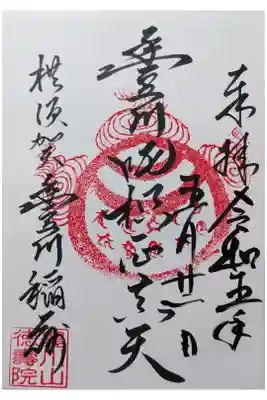 奉拝 令和五年
五月廿日
豊川吒枳尼真天
横須賀豊川稲荷
豊川山
徳壽院